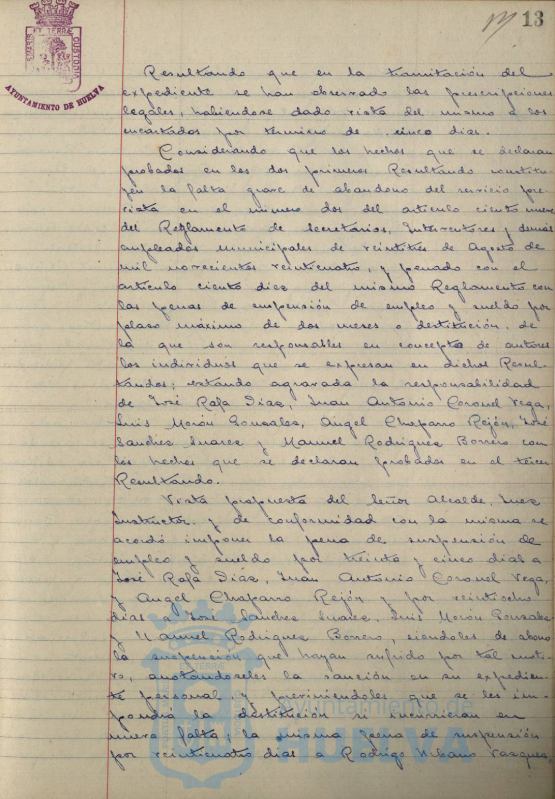 13
AYUNTAMIENTO DE HUELVA
Resultando que en la tramitación del
expediente se han observado las prescripciones
legales, habiendose dado vista del mismo a los
encartados por término de cinco dias.
Considerando que los hechos que se declaran
probados en los dos primeros Resultando constitu-
yen la falta grave de abandono del servicio pre-
vista en el número dos del articulo ciento nueve
del Reglamento de Secretarios, Interventores y demás
empleados municipales de veintitres de Agosto de
mil novecientos veinticuatro, y penado con el
articulo ciento diez del mismo Reglamento con
las penas de suspensión de empleo y sueldo por
plazo máximo de dos meses o destitución, de
la que son responsables en concepto de autores
los individuos que se expresan en dichos Resul-
tandos; estando agravada la responsabilidad
de José Rafa Diaz, Juan Antonio Coronel Vega,
Luis Morón Gonzalez, Angel Chaparro Rejón, José
Sanchez Suarez y Manuel Rodriguez Borrero con
los hechos que se declaran probados en el tercer
Resultando.
Vista propuesta del Señor Alcalde, Juez
Instructor y de conformidad con la misma se
acordó imponer la pena de suspensión de
empleo y sueldo por treinta y cinco dias a
José Rafa Diaz, Juan Antonio Coronel Vega,
y Angel Chaparro Rejón y por veintiocho
dias a José Sanchez Suarez, Luis Morón Gonzalez
y Manuel Rodriguez Borrero, siendoles de abono
la suspensión que hayan sufrido por tal moti-
vo, anotandoseles la sanción en su expedien-
te personal y previniendoles que se les im-
pondrá la destitución si incurrieran en
nueva falta; la misma pena de suspensión
por veinticuatro dias a Rodrigo Urbano Vazquez,
Ayuntamiento de
HUELVA